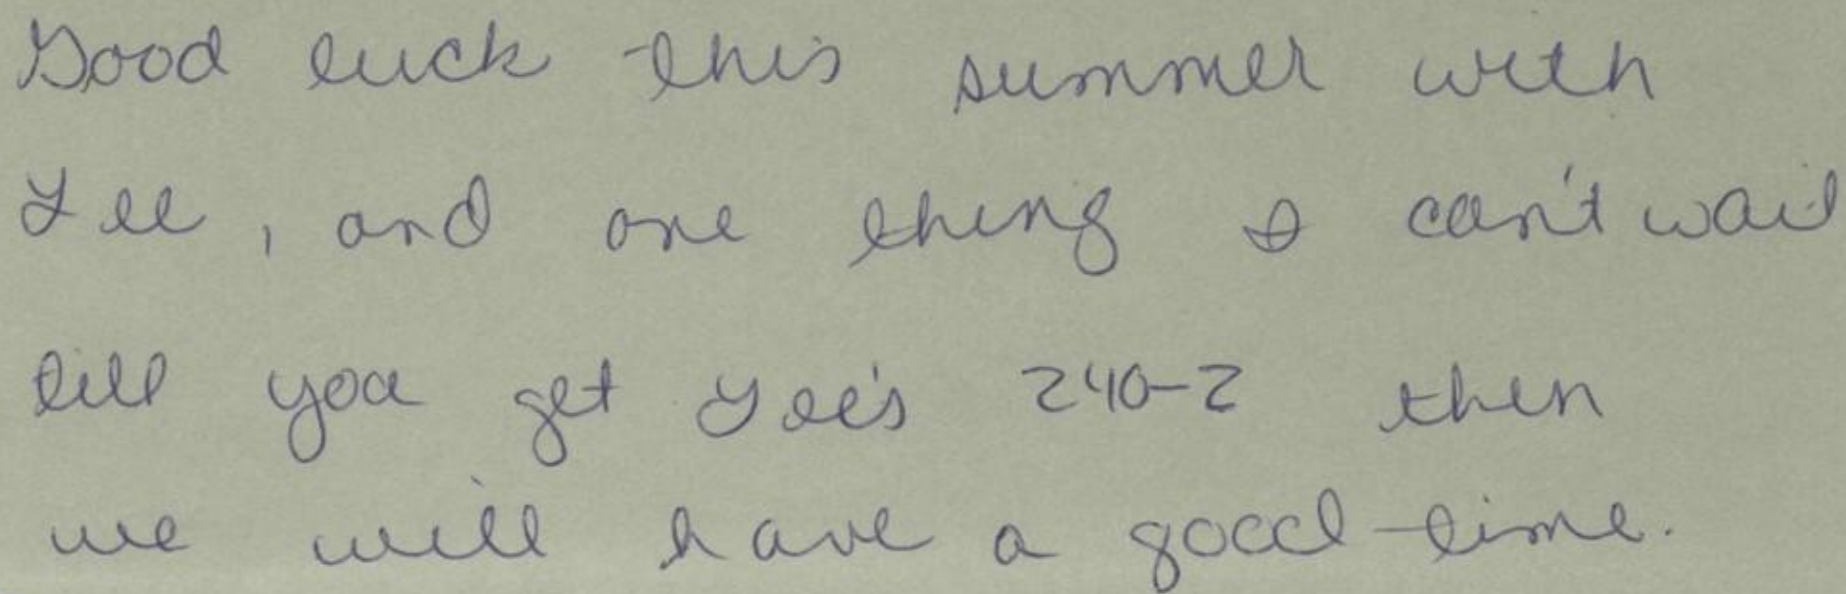 Good luck this summer with
Lee, and one thing I can't wait
till you get Lee's 240-Z then
we will have a good time.